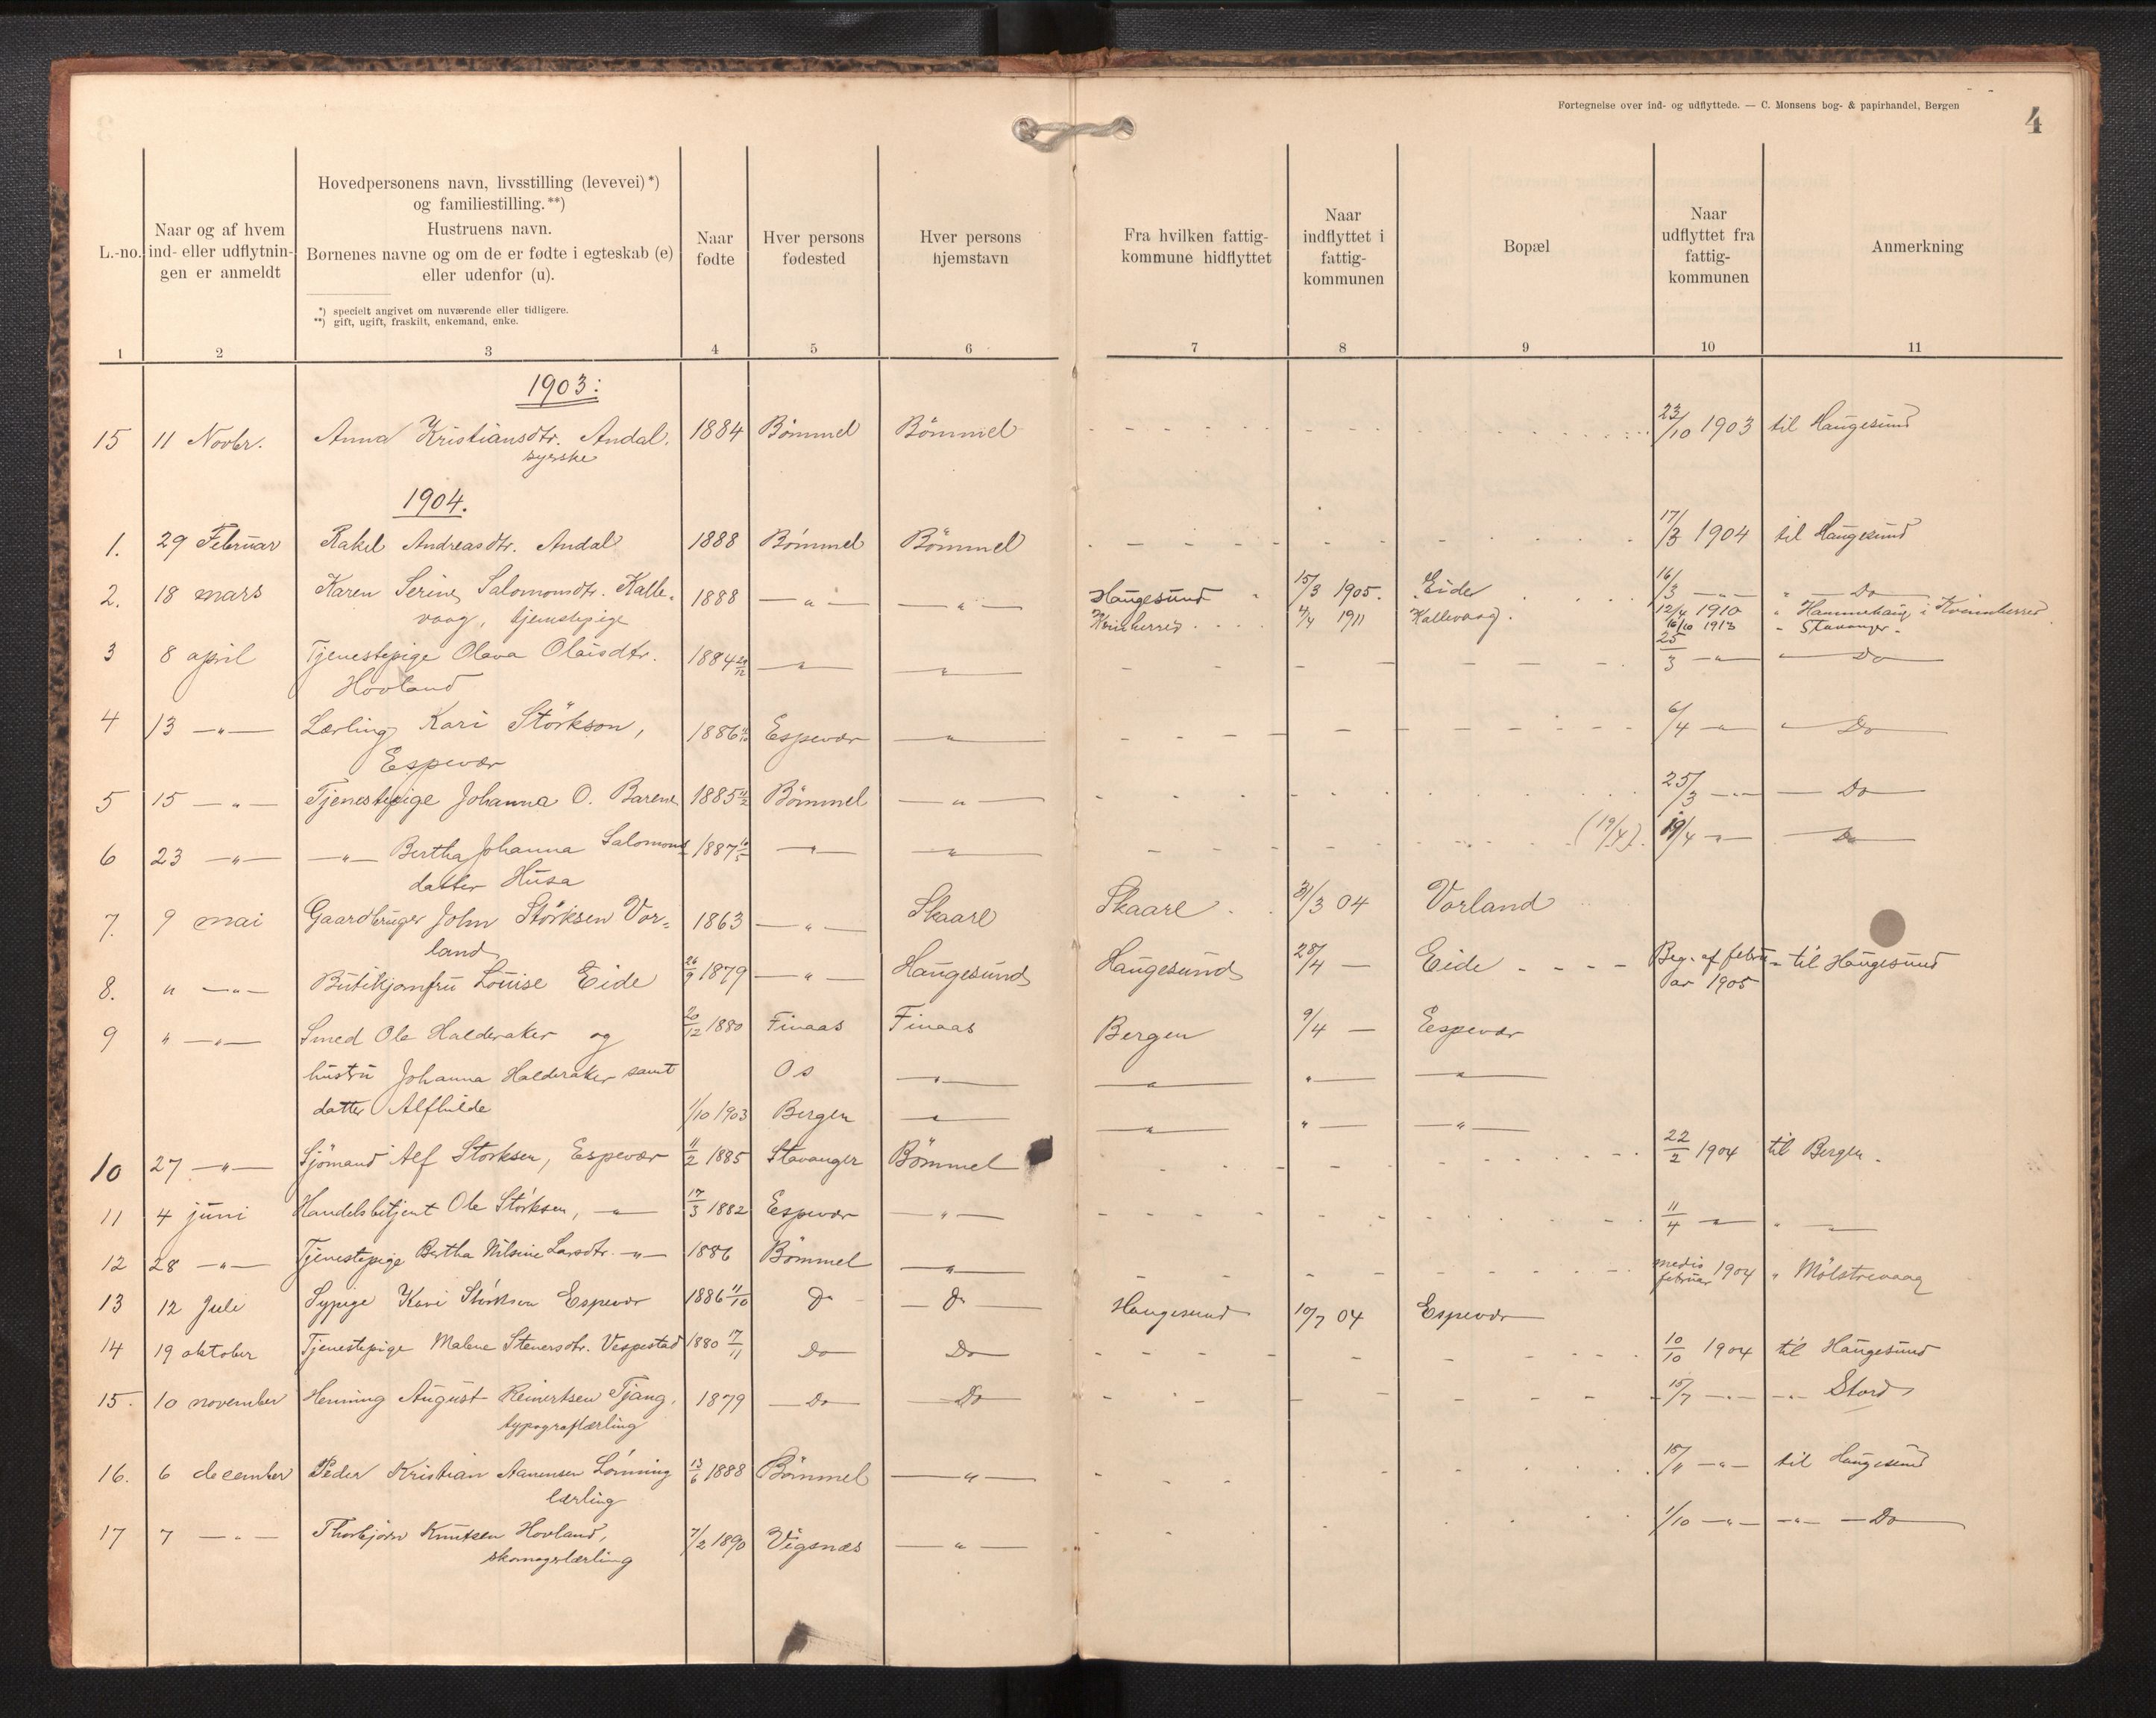 Fortegnelse over ind- og udflyttede. — C. Monsens bog- & papirhandel, Bergen
4
L.-no.
Naar og af hvem
ind- eller udflytnin-
gen er anmeldt
Hovedpersonens navn, livsstilling (levevei)*)
og familiestilling.**)
Hustruens navn.
Børnenes navne og om de er fødte i egteskab (e)
eller udenfor (u).
*) specielt angivet om nuværende eller tidligere.
**) gift, ugift, fraskilt, enkemand, enke.
Naar
fødte
Hver persons
fødested
Hver persons
hjemstavn
Fra hvilken fattig-
kommune hidflyttet
Naar
indflyttet i
fattig-
kommunen
Bopæl
Naar
udflyttet fra
fattig-
kommunen
Anmerkning
1 2 3 4 5 6 7 8 9 10 11
1903:
15 11 Novbr. Anna Kristiansdtr. Andal, 1884 Bömmel Bömmel 23/10 1903 til Haugesund
syerske
1904.
1. 29 Februar Rakel Andreasdtr. Andal 1888 Bömmel Bömmel 17/3 1904 til Haugesund
2. 18 mars Karen Serine Salomonsdtr. Kalle- 1888 —„— —„— Haugesund 15/3 1905. Eide 16/3 —„— „ Do
vaag, tjenestepige Kvinherred 4/4 1911 Kallevaag. 12/4 1910 „ Hammerhaug i Kvinnherred
16/10 1913 „ Stavanger
3 8 april Tjenestepige Olava Olaisdtr. 1884 29/12 —„— —„— 25/3 —„— „ Do
Hovland
4 13 —„— Lærling Kari Störkson, 1886 11/10 Espevær —„— 6/4 —„— „ Do
Espevær
5 15 —„— Tjenestepige Johanna O. Barene 1885 11/2 Bömmel —„— 25/3 —„— — Do
6 23 —„— —„— Bertha Johanna Salomons 1887 16/5 —„— —„— (19/4). 19/4 —„— Do
datter Husa
7. 9 mai Gaardbruger John Störksen Vor- 1863 —„— Skaare Skaare 31/3 04 Vorland
land
8. „ —„— Butikjomfru Louise Eide 26/9 1879 —„— Haugesund Haugesund 28/4 — Eide Beg. af febru- til Haugesund
ar 1905
9 „ —„— Smed Ole Halderaker og 20/12 1880 Finaas Finaas Bergen 9/4 — Espevær
hustru Johanna Halderaker samt Os —„— —„— „— —„—
datter Alfhilde 1/10 1903 Bergen —„— —„— „— —„—
10 27 —„— Sjömand Alf Störksen, Espevær 11/2 1885 Stavanger Bömmel 22/2 1904 til Bergen.
11 4 juni Handelsbetjent Ole Störksen, —„— 17/3 1882 Espevær —„— 11/4 —„— „ —„—
12 28 —„— Tjenestepige Bertha Nilsine Larsdtr. —„— 1886 Bömmel —„— medio februar 1904 „ Mölstrevaag
13 12 Juli Sypige Kari Störkson Espevær 1886 11/10 Do — Do — Haugesund 10/7 04 Espevær
14 19 oktober Tjenestepige Malene Stenersdtr. Vespestad 1880 17/11 Do Do 10/10 1904 til Haugesund
15. 10 november Henning August Reinertsen Tjang, 1879 Do Do 15/7 —„— —„— Stord
typograflærling
16. 6 december Peder Kristian Aanensen Lönning 13/6 1888 Bömmel —„— 15/11 —„— til Haugesund
lærling
17 7 —„— Thorbjörn Knutsen Hovland, 7/2 1890 Vigsnæs —„— 1/10 —„— —„— Do
skomagerlærling